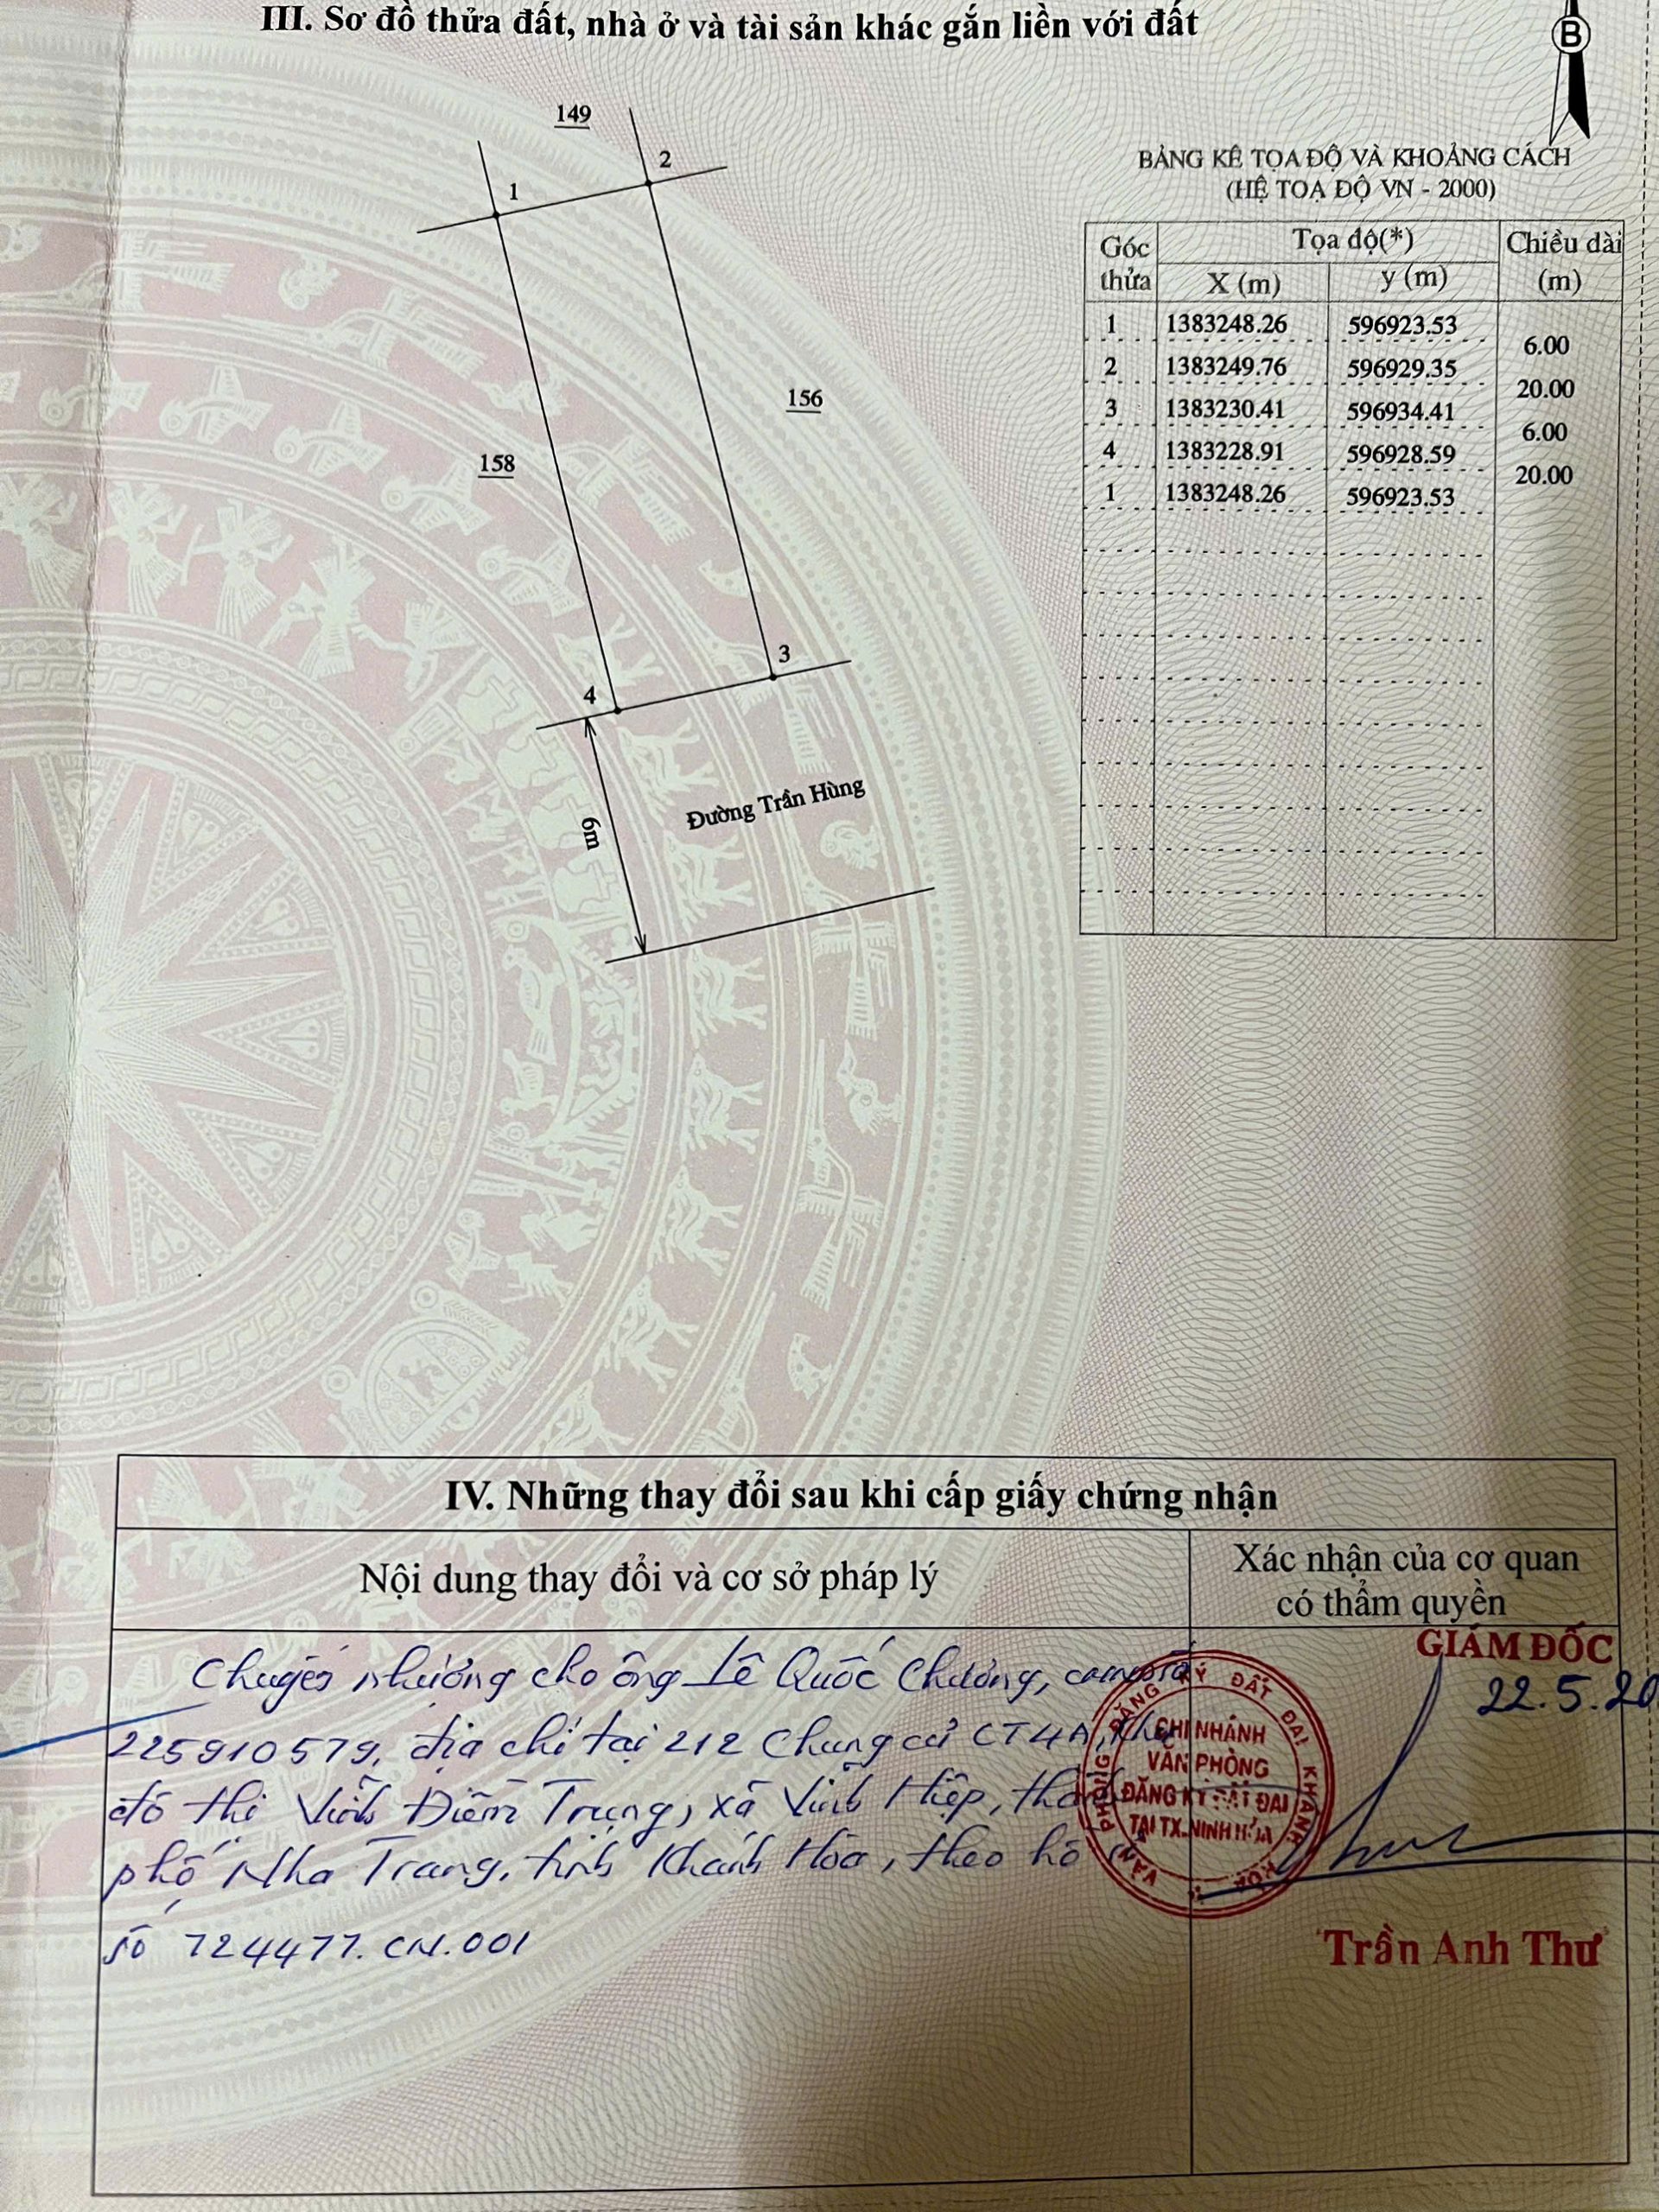 III. Sơ đồ thửa đất, nhà ở và tài sản khác gắn liền với đất
B
149
1
2
156
158
3
4
6m
Đường Trần Hùng
BẢNG KÊ TỌA ĐỘ VÀ KHOẢNG CÁCH
(HỆ TOẠ ĐỘ VN - 2000)
Góc thửa Tọa độ(*) Chiều dài (m)
X (m) y (m)
1 1383248.26 596923.53
6.00
2 1383249.76 596929.35
20.00
3 1383230.41 596934.41
6.00
4 1383228.91 596928.59
20.00
1 1383248.26 596923.53
IV. Những thay đổi sau khi cấp giấy chứng nhận
Nội dung thay đổi và cơ sở pháp lý
Xác nhận của cơ quan
có thẩm quyền
Chuyển nhượng cho ông Lê Quốc Chương,
225910579, địa chỉ tại 212 Chung cư CT4A, khu
đô thị Vĩnh Điềm Trung, xã Vĩnh Hiệp, thành
phố Nha Trang, tỉnh Khánh Hòa, theo hồ sơ
số 724477.CN.001
GIÁM ĐỐC
22.5.20
VĂN PHÒNG ĐĂNG KÝ ĐẤT ĐAI KHÁNH HÒA
CHI NHÁNH
VĂN PHÒNG
ĐĂNG KÝ ĐẤT ĐAI
TẠI TX.NINH HÒA
Trần Anh Thư